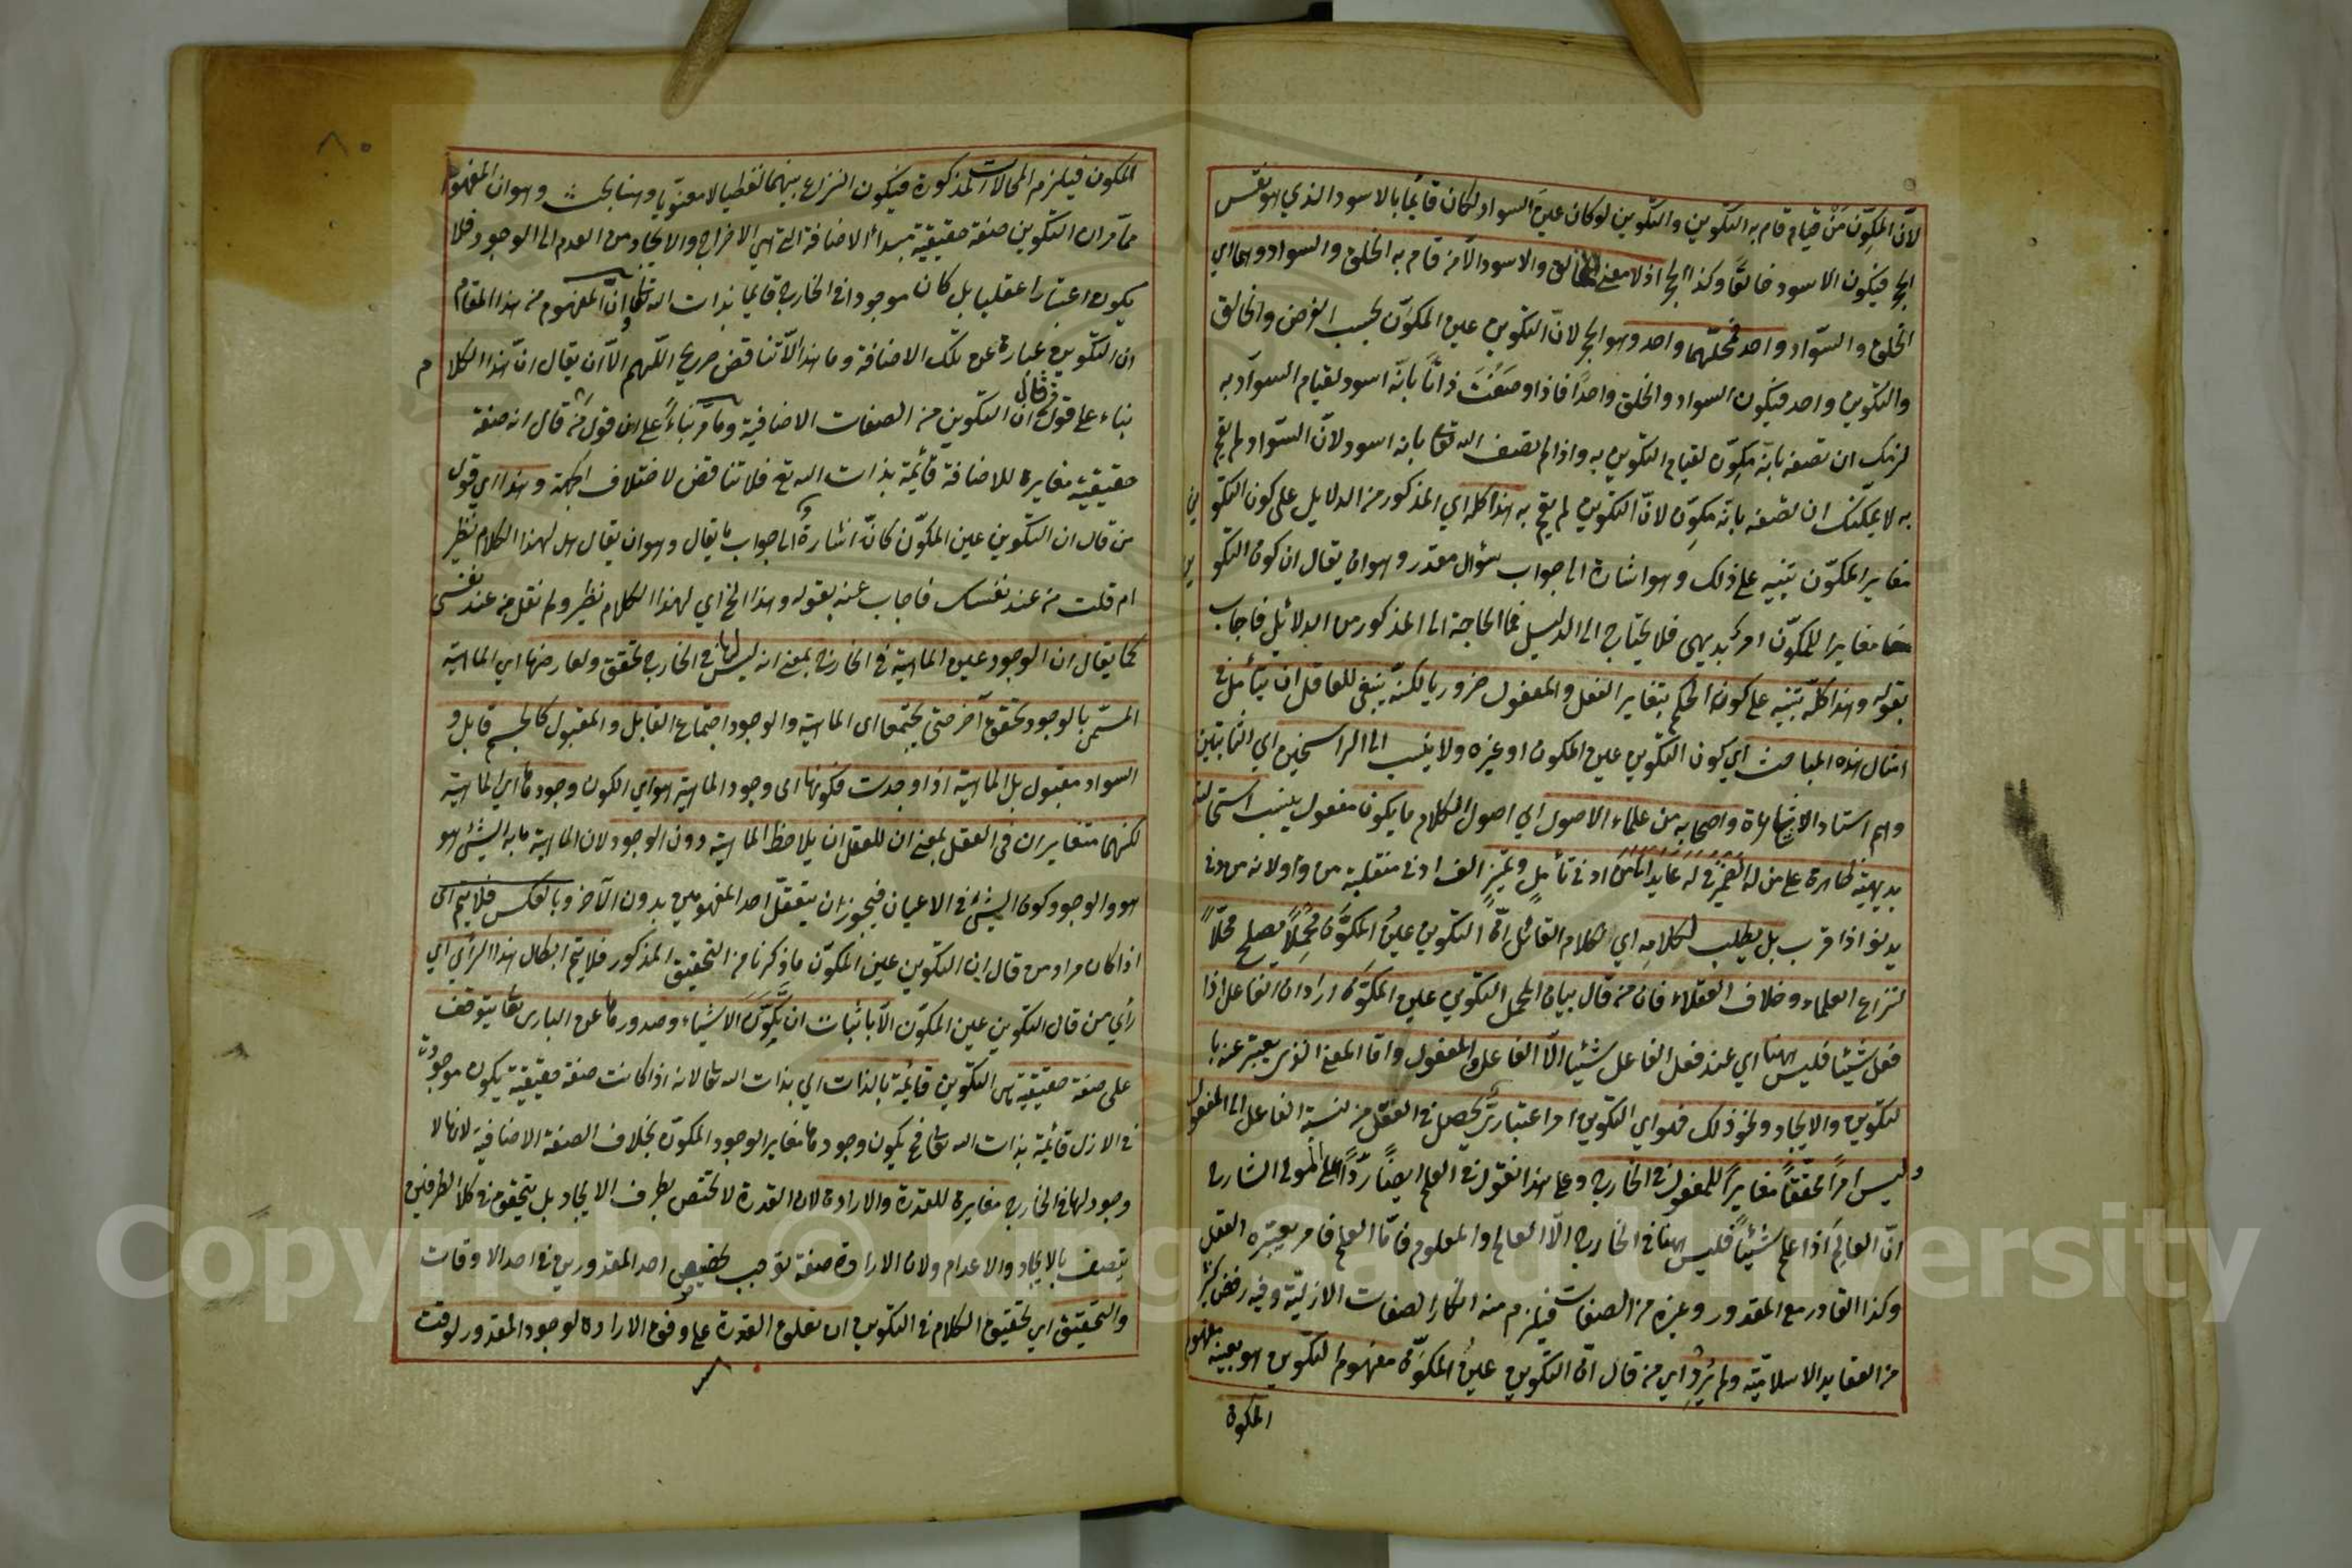 لانّ المكوِّن مَنْ قيام قام به التكوين والتكوين لو كان عين السواد لكان قائما بالاسود الذي هو نفس
الحجر فيكون الاسود خالقًا وكذا الحجر اذ لا معنى للخالق والاسود الّا من قام به الخلق والسواد وهما اي
الخلق والسّواد واحد فمحلّهما واحد وهو الحجر لانّ التكوين عين المكوّن بحسب الفرض والخالق
والتكوين واحد فيكون السواد والخلق واحدًا فاذا وصَفْتَ ذاتًا بانّه اسود لقيام السوآد به
لزمك ان تصفه بانّه مكوّن لقيام التكوين به واذا لم تصف الله تعالى بانه اسود لانّ السّواد لم يقم
به لا يمكنك ان تصفه بانّه مكوِّن لانّ التكوين لم يقم به هذا كله اي المذكور من الدلايل على كون التكوين
مغاير المكوّن تنبيه على ذلك وهو اشارة الى جواب سؤال مقدر وهو ان يقال ان كون التكوين
مغايرا للمكوّن امر بديهى فلا يحتاج الى الدليل فما الحاجة الى المذكور من الدلائل فاجاب
بقوله وهذا كلّه تنبيه على كون الحكم بتغاير الفعل والمفعول ضروريا لكنّه ينبغى للعاقل ان يتأمل في
امثال هذه المباحث اي كون التكوين عين المكون او غيره ولا ينسب الى الراسخين اي الثابتين
وهم استاد الاشاعرة واصحابه من علماء الاصول اي اصول الكلام ما يكون مفعول ينسب استحالته
بديهيّة ظاهرة على من له تميّز ادنى تأمل وتميّز الف ادنى منقلبة من واو لانه من دنى
يدنو اذا قرب بل يطلب لكلامه اي لكلام القائل انّ التكوين عينُ المكوَّن محملاً يصلح محلّاً
لنزاع العلماء وخلاف العقلاء فان من قال بيان المحمل التكوين عين المكوَّن اراد ان الفاعل اذا
فعل شيئا فليس ههنا اي عند فعل الفاعل شيئا الّا الفاعل والمفعول وامّا المعنى الذي يعبّر عنه با
لتكوين والايجاد ونحو ذلك فهو اي التكوين امر اعتباريّ يحصل في العقل من نسبة الفاعل الى المفعول
وليس امرًا محقّقًا مغايرًا للمفعول في الخارج وعلى هذا نقول في العلم ايضًا ردًّا على المولى الشارح
انّ العالِم اذا علم شيئًا فليس ههنا في الخارج الّا العالم والمعلوم فامّا العلم فامر يعتبره العقل
وكذا القادر مع المقدور وغيره من الصفات فيلزم منه انكار الصفات الازليّة وفيه رفض كثير
من العقايد الاسلاميّة ولم يُرِدْ اي من قال انّ التكوين عينُ المكوّن مفهوم التكوين هو بعينه مفهوم
المكون
٨٠
المكون فيلزم المحالات المذكورة فيكون النزاع بينهما لفظيا لا معنويا وههنا بحث وهو ان المفهوم
ممّا مرّ ان التكوين صفة حقيقيّة مبدأ الاضافة التي هي الاخراج والايجاد من العدم الى الوجود فلا
يكون اعتبارا عقليا بل كان موجودا في الخارج قائما بذات الله تعالى وانّ المفهوم من هذا المقام
ان التكوين عبارة عن تلك الاضافة وما هذا الّا تناقض صريح اللّهم الّا ان يقال انّ هذا الكلام
بناء على قول من قال ان التكوين من الصفات الاضافية وما مرّ بناءً على قول من قال انه صفة
حقيقيّة مغايرة للاضافة قائمة بذات الله تع فلا تناقض لاختلاف الجهة وهذا اي قول
من قال ان التكوين عين المكوّن كانّه اشارة الى جواب ما يقال وهو ان يقال هل لهذا الكلام نظير
ام قلت من عند نفسك فاجاب عنه بقوله وهذا الخ اي لهذا الكلام نظير ولم نقل من عند نفسى
كما يقال ان الوجود عين الماهية في الخارج بمعنى انه ليس لها في الخارج تحقق ولعارضها اي الماهية
المسمّى بالوجود تحقق آخر حتى يجتمعا اى الماهية والوجود اجتماع القابل والمقبول كالجسم قابل و
السواد مقبول بل الماهية اذا وجدت فكونها اى وجود الماهية هو اي الكون وجودها اي الماهية
لكنهما متغايران فى العقل بمعنى ان للعقل ان يلاحظ الماهية دون الوجود لان الماهية ما به الشيئ هو
هو والوجود كون الشيئ في الاعيان فيجوز ان يتعقّل احد المفهومين بدون الآخر وبالعكس فلا يتم اى
اذا كان مراد من قال ان التكوين عين المكوّن ما ذكرنا من التحقيق المذكور فلا يتم ابطال هذا الرأي اي
رأي من قال التكوين عين المكوّن الّا باثبات ان تكوّن الاشياء وصدورها عن البارى تعالى يتوقف
على صفة حقيقية هى التكوين قائمة بالذات اي بذات الله تعالى لانه اذا كانت صفة حقيقية يكون موجودة
في الازل قائمة بذات الله تعالى فح يكون وجودها مغاير الوجود المكوّن بخلاف الصفة الاضافية لانها لا
وجود لها في الخارج مغايرة للقدرة والارادة لان القدرة لا تختص بطرف الايجاد بل يتحقق في كلا الطرفين
يتصف بالايجاد والاعدام ولان الارادة صفة توجب تخصيص احد المقدورين في احد الاوقات
والتحقيق اي تحقيق الكلام في التكوين ان تعلق القدرة على وفق الارادة لوجود المقدور لوقت
Copyright © King Saud University